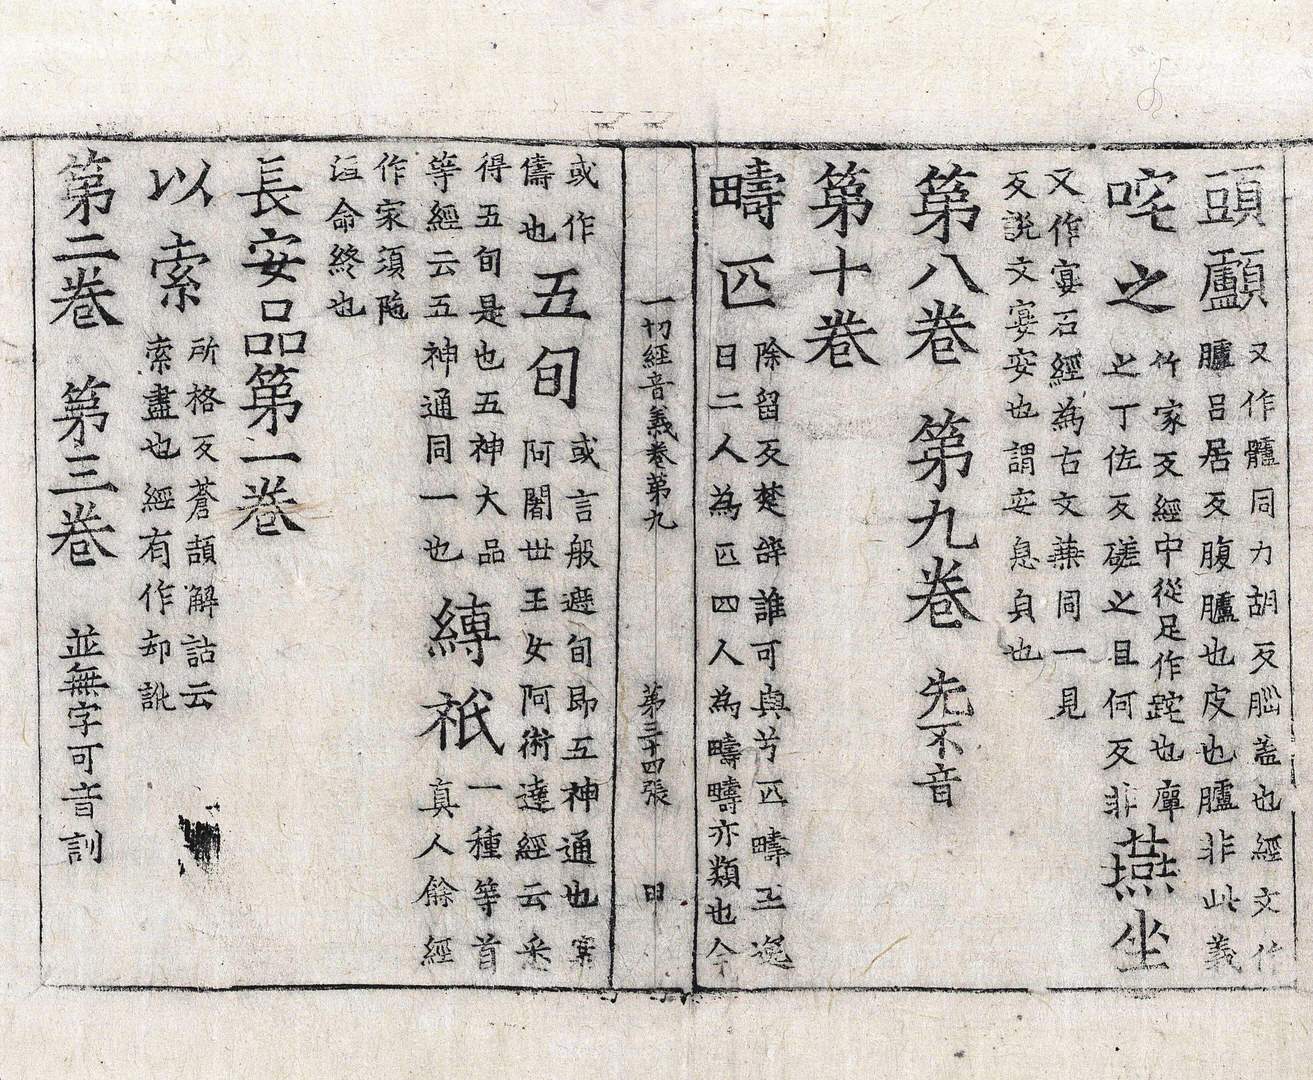 頭顱 又作髗同力胡反腦盖也經文作
臚呂居反腹臚也皮也臚非此義
咤之 竹家反經中從足作跎也庫
之丁佐反磋之且何反非 燕坐
又作宴石經為古文䕼同一見
反說文宴安也謂安息貞也
第八卷 第九卷 先不音
第十卷
疇匹 除留反楚辝誰可與兮匹疇王逸
曰二人為匹四人為疇疇亦類也今
一切經音義卷第九 第三十四張 曰
或作
儔也 五旬 或言般遮旬即五神通也案
阿闍世王女阿術達經云悉
得五旬是也五神大品
等經云五神通同一也 縳祇 一種等首
真人餘經
作家須陁
洹命終也
長安品第一卷
以索 所格反蒼頡解詁云
索盡也經有作却訛
第二卷 第三卷 並無字可音訓